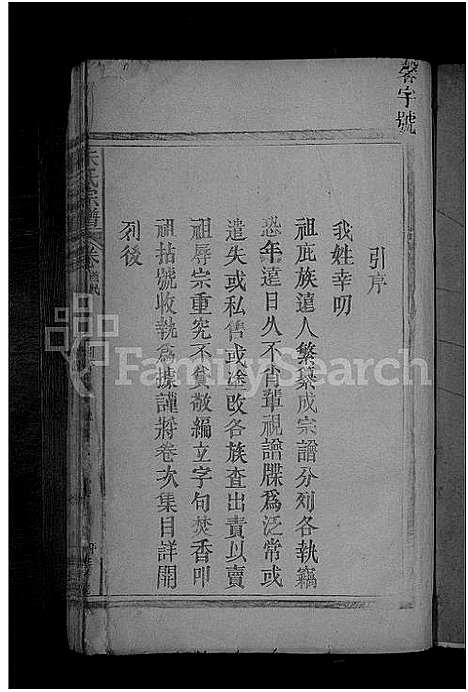 馨字號
引序
我姓幸叨
祖庇族遠人繁纂成宗譜分列各執竊
恐年遠日久不肖輩視譜牒為泛常或
遺失或私售或塗改各族查出責以賣
祖辱宗重究不貸敬編立字句焚香叩
祖拈號收執為據謹將卷次集目詳開
列後
氏宗譜
卷
FamilySearch